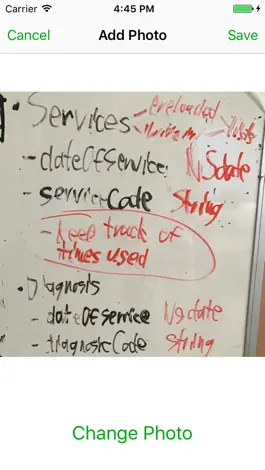 Carrier 4:45 PM
Cancel Add Photo Save
• Services - Preloaded
- dateOfService NSdate
- serviceCode String
- Keep track of
times used
• Diagnosis
- dateOfService NSdate
- diagnosticCode String
Change Photo